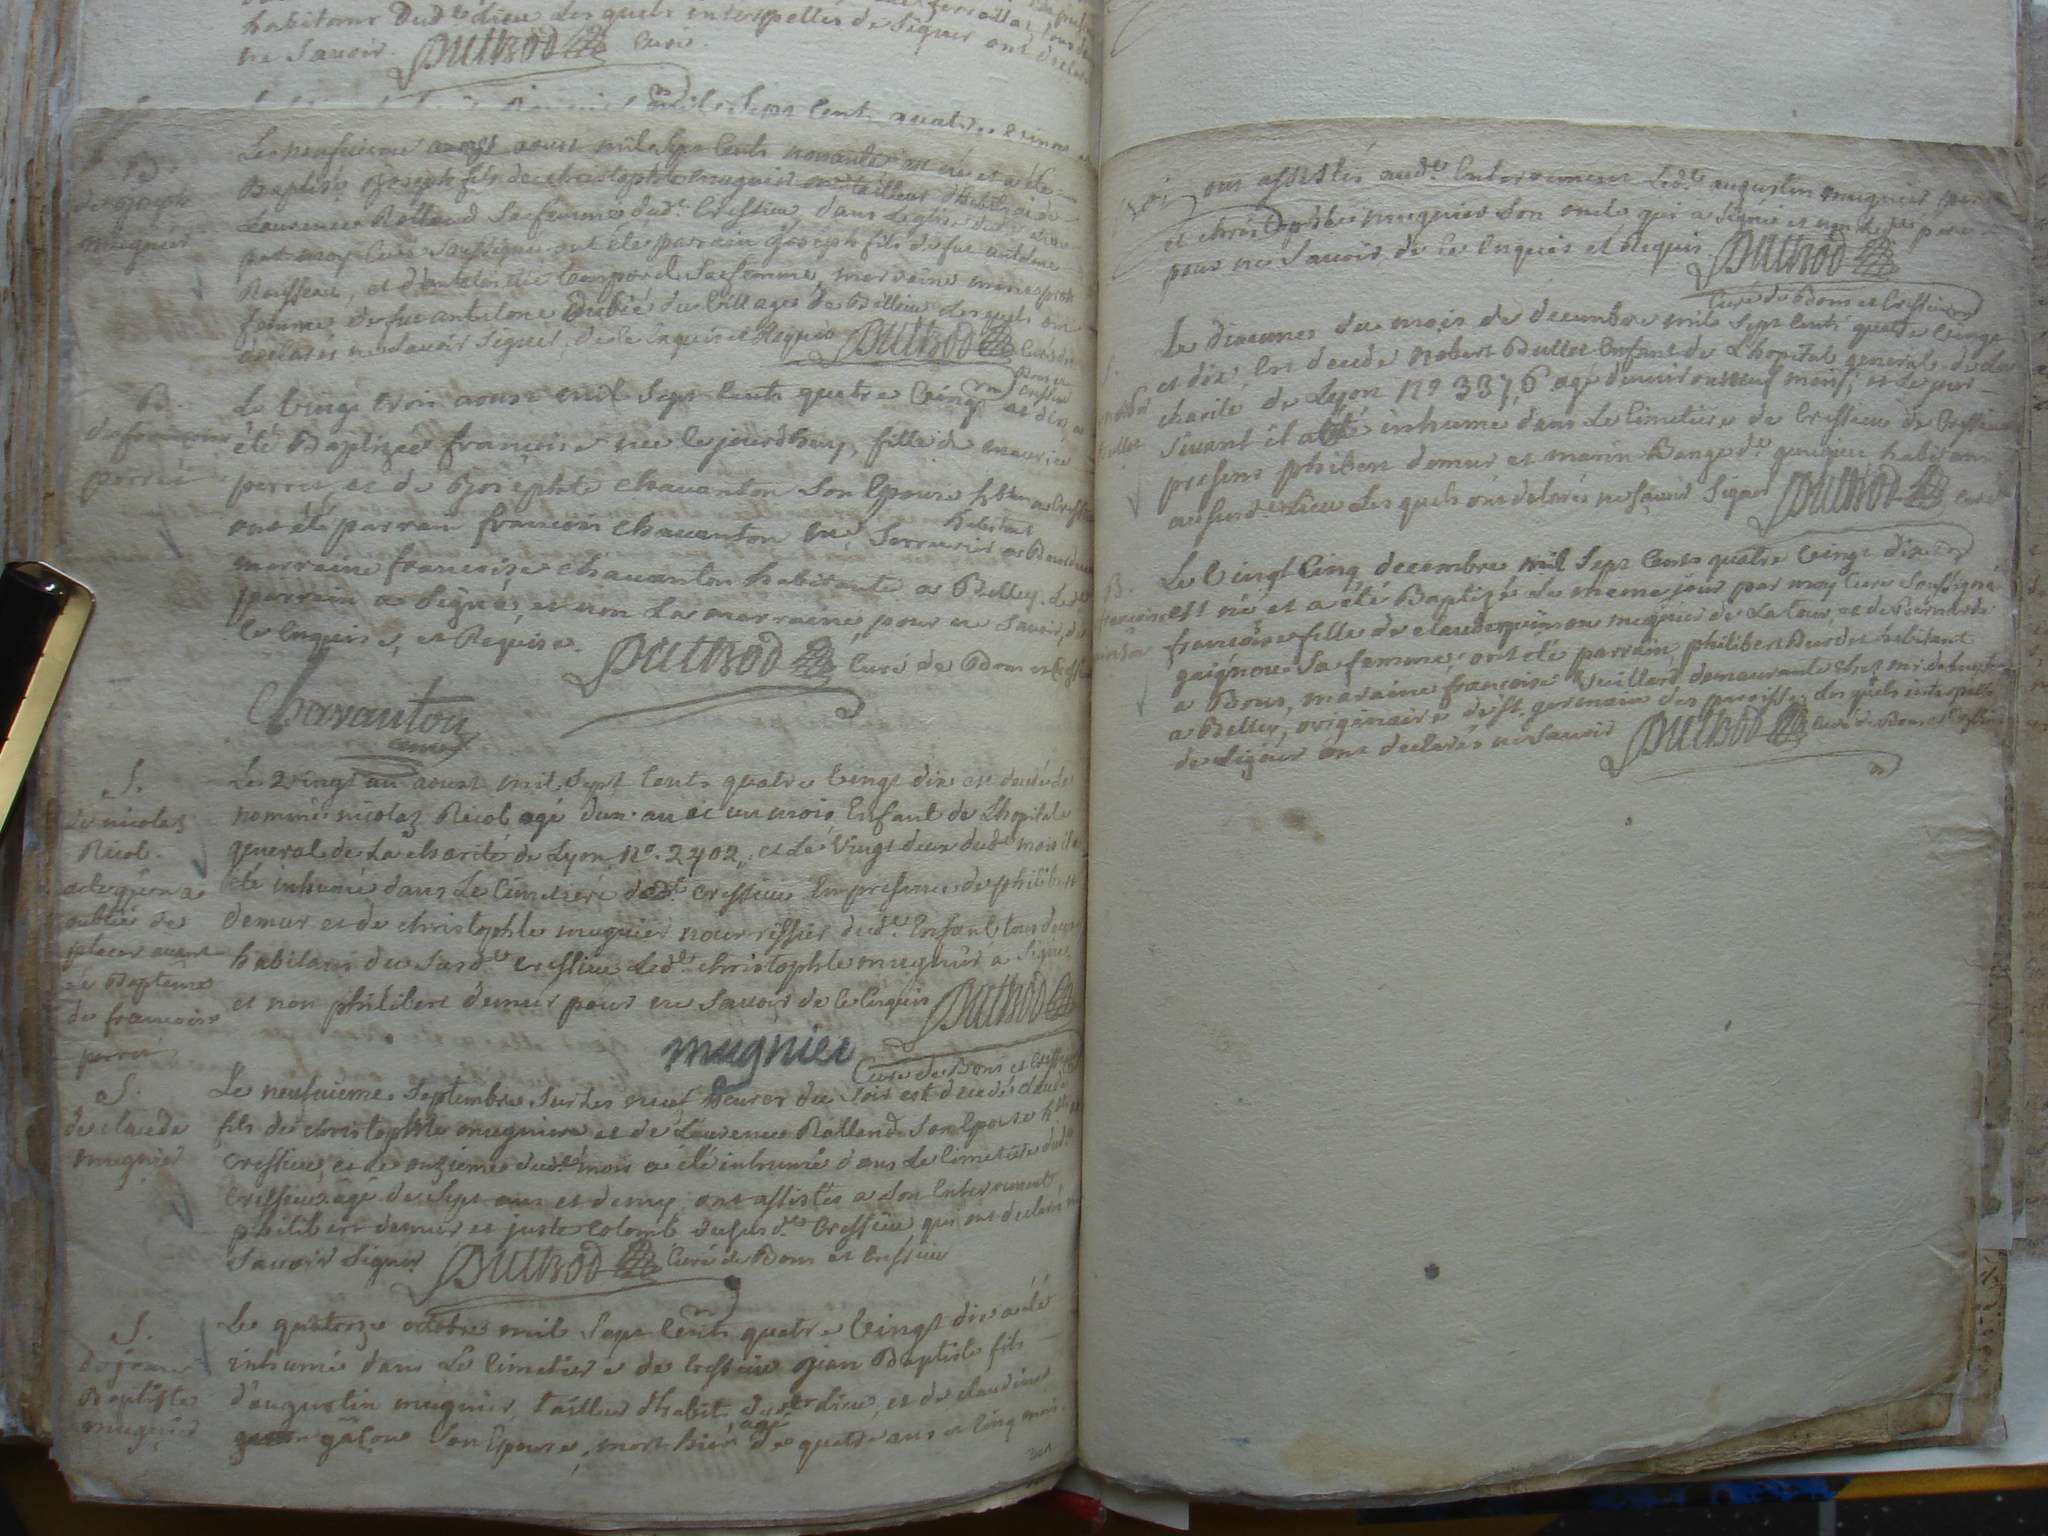 habitans dud.t lieu lesquels interpellés de signer ont déclaré
ne savoir. Duthod curé.
mil sept cents quatre vingt
B.
de joseph
mugnier
Le neufvieme aoust mil sept cents nonante est né et a été
Baptisé joseph fils de christophle mugnier tailleur d'habits et de
Laurence Rolland sa femme dud.t Cressieu, dans l'eglise dud.t lieu
par moy Curé soussigné ont été parrain joseph fils de fut antelme
Rousseau, et d'antelmie sa femme, marraine
femme de fut antelme du village de Billieu lesquels ont
déclarés ne savoir signer, de ce enquis et Requis Duthod Curé de
Bons et
Cressieu
B.
de francoise
perret
Le vingt trois aoust mil sept cents quatre vingt et dix, a
été Baptizée francoise née le jourdhuy, fille de maurice
perret, et de Josephte chavanton son Epouse h.tans a Cressieu
ont été parrain francois chavanton m.e serrurier habitant a
marraine francoise chavanton habitante a Belley. Led.t
parrain a signé, et non la marraine, pour ne savoir, de
ce enquise, et Requise. Duthod Curé de Bons et Cressieu
Chavanton
S.
De nicolas
Ricol.
acte qu'on a
oublié de
placer avant
le Bapteme
de francoise
perret
Le 2vingt un aoust mil sept cents quatre vingt dix est decedé le
nommé nicolas Ricol agé d'un an et un mois, Enfant de L'hopital
general de la charité de Lyon N.o 2402, et le vingt deux dud.t mois il a
été inhumé dans le cimetiere dud.t cressieu En presence de philibert
demur et de christophle mugnier nourrissier dud.t Enfant tous deux
habitans du susd.t cressieu led.t christophle mugnier a signé
et non philibert demur pour ne savoir de ce enquis Duthod
mugnier Curé de Bons et Cressieu
S.
de claude
mugnier
Le neufvieme septembre sur les neuf heures du soir est decedé claude
fils de christophle mugnier et de Laurence Rolland son Epouse h.tans
Cressieu, et le onzieme dud.t mois a été inhumé dans le cimetiere dud.t
Cressieu agé de sept ans et demy, ont assistés a son Enterrement
philibert demur et juste colomb dusus d.t Cressieu qui ont declarés ne
savoir signer Duthod Curé de Bons et Cressieu
S.
de jean
Baptiste
mugnier
Le quatorze octobre mil sept cents quatre vingt dix a été
inhumé dans le cimetiere de Cressieu jean Baptiste fils
d'augustin mugnier, tailleur d'habit, dud.t lieu, et de claudine
gâtou son Epouse, mort hier agé de quatre ans et cinq mois.
ont assistés aud.t Enterrement led.t augustin mugnier pere
et christophle mugnier son oncle qui a signé et non led.t pere
pour ne savoir, de ce enquis et Requis Duthod
Curé de Bons et Cressieu
S.
Robert
Bullet
Le dixieme du mois de decembre mil sept cents quatre vingt
et dix, est decedé Robert Bullet Enfant de L'hopital general de la
charité de Lyon N.o 3376 agé d'environ neuf mois, et le jour
suivant il a été inhumé dans le cimetiere de Cressieu
present philibert demur et marin habitans
au susd.t lieu lesquels ont déclarés ne savoir signer Duthod Curé
B.
francoise
Le vingt cinq decembre mil sept cents quatre vingt dix
est née et a été Baptizé le meme jour par moy Curé soussigné
francoise fille de claude meunier de La tour, et de Bernarde
sa femme, ont été parrain philibert habitant
a Bons, maraine francoise Vuillard demeurante chez mr.
a Belley, originaire de st. germain des paroisses lesquels interpellés
de signer ont declarés ne savoir Duthod Curé de Bons et Cressieu